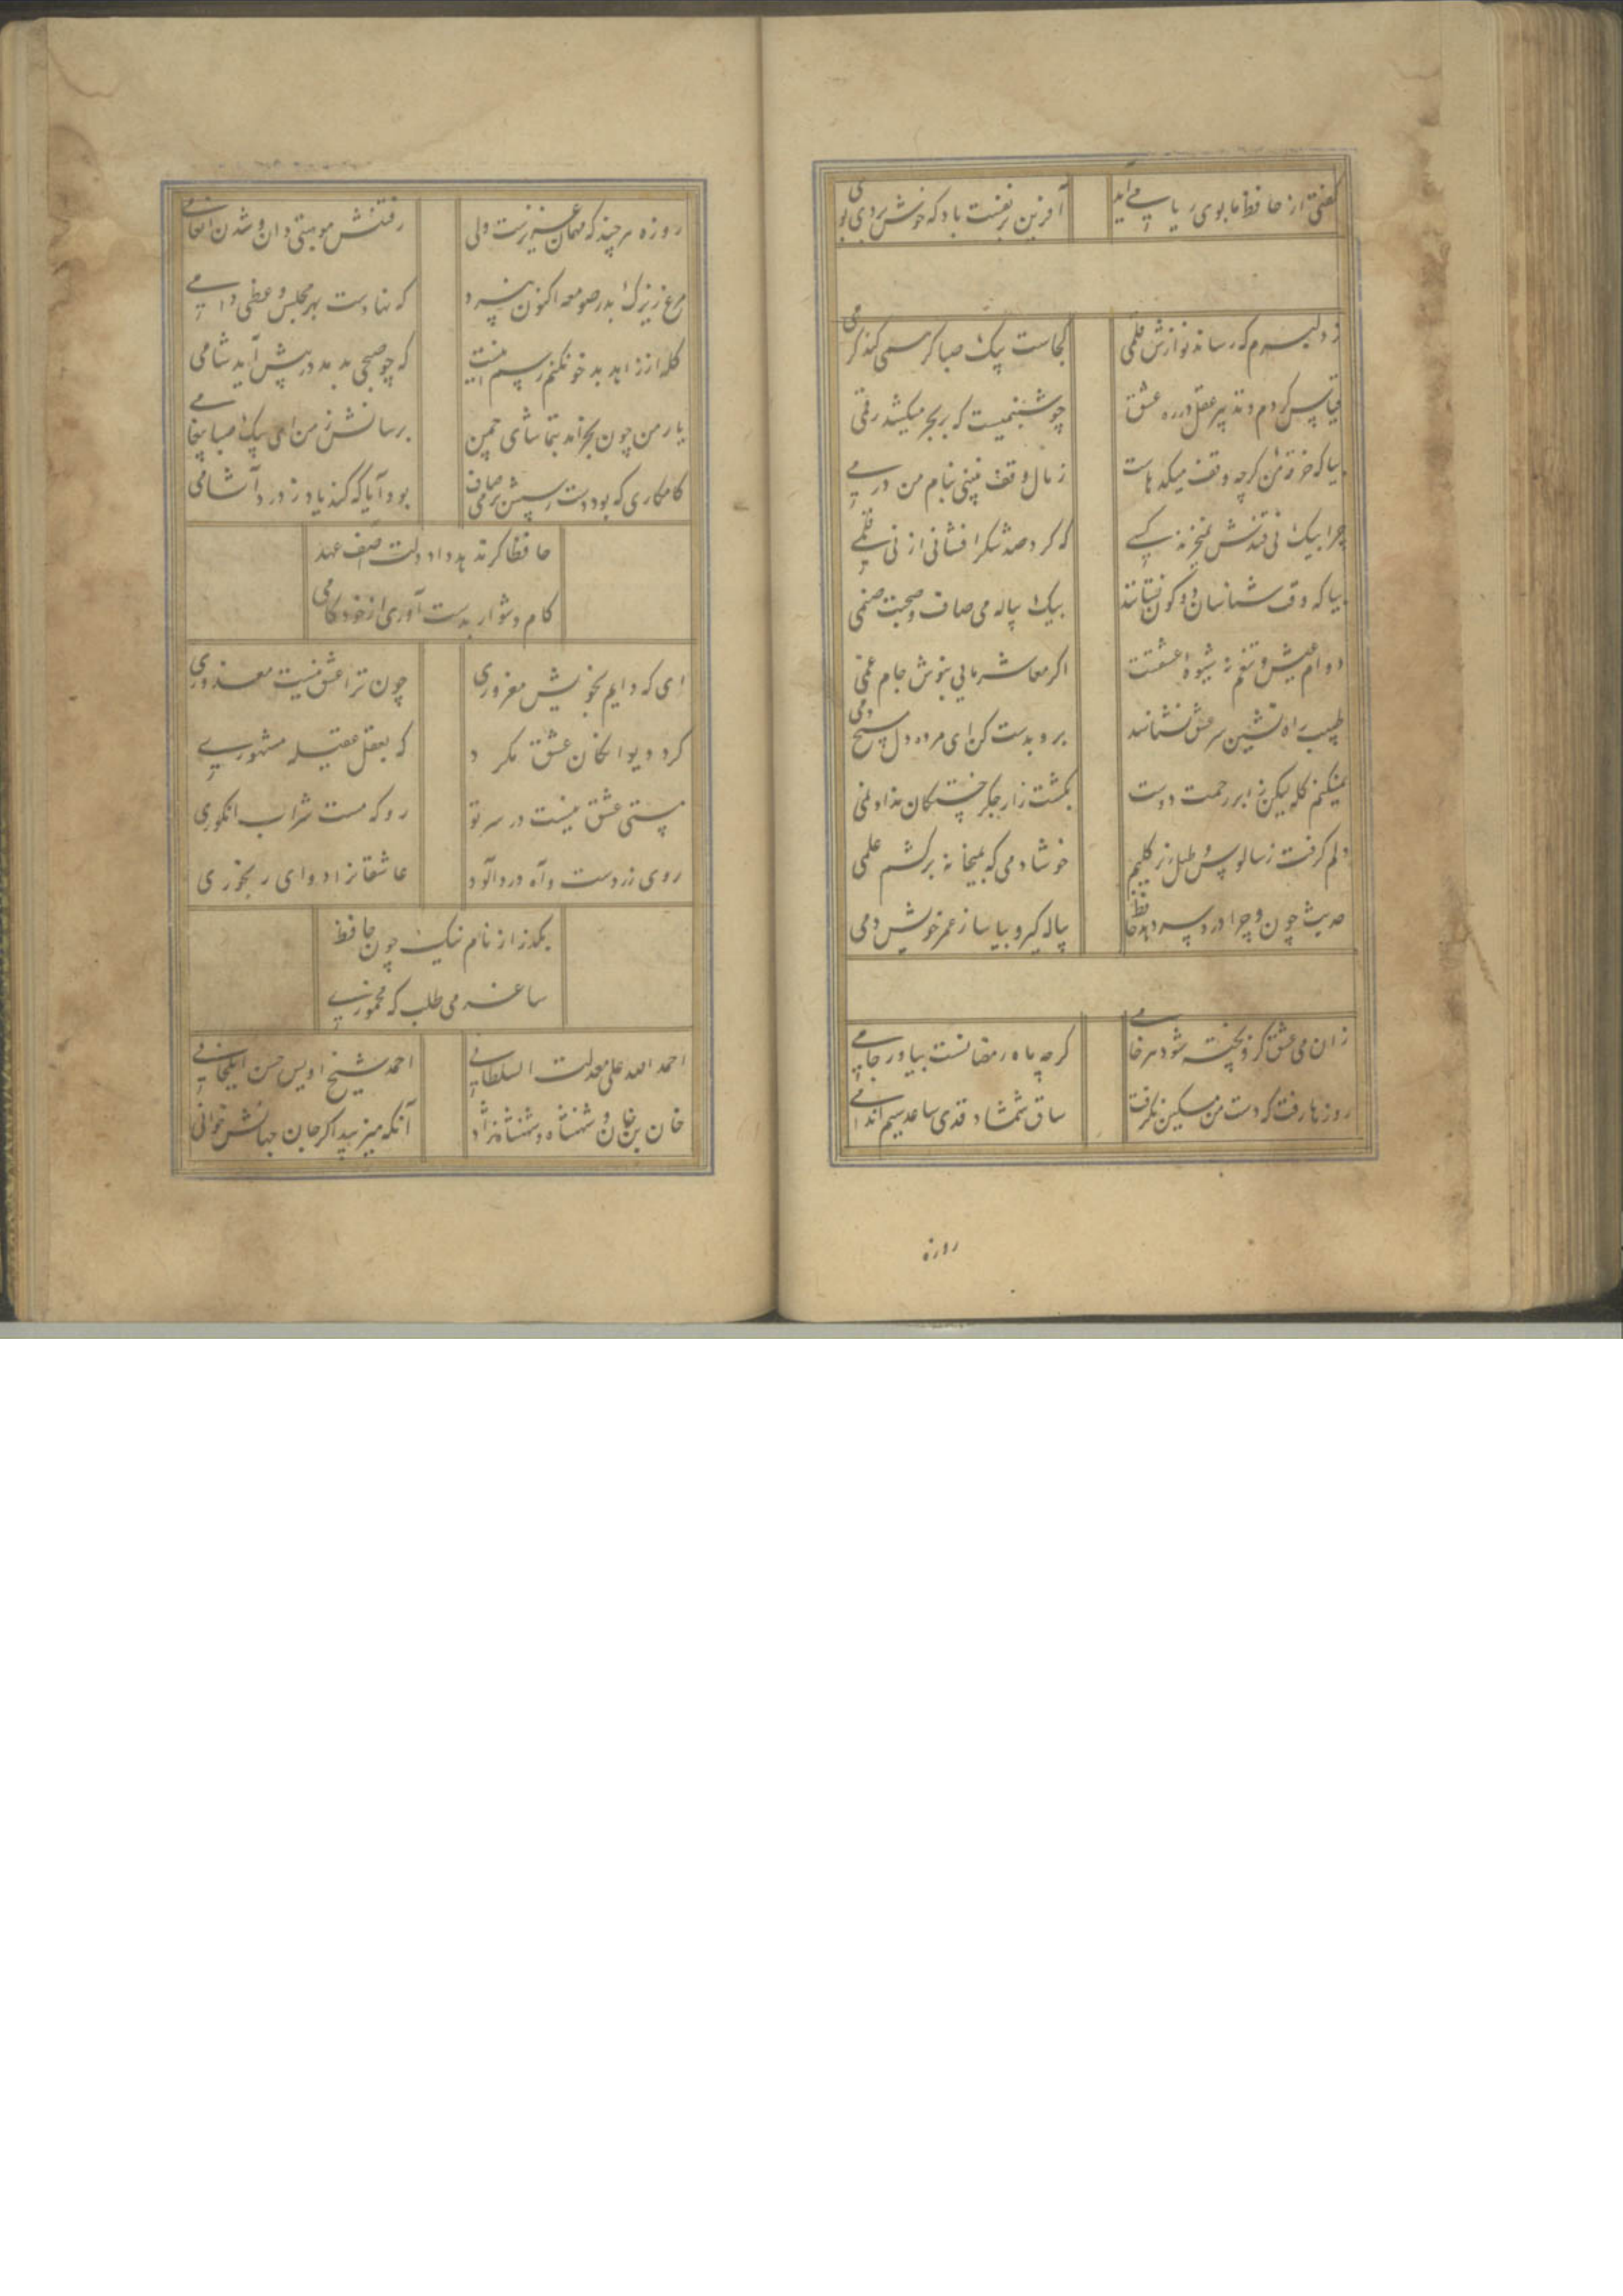 گفتی از حافظ ما بوی ریا می آید
آفرین بر نفست باد که خوش بردی بوی
ز دلبرم که رساند نوازش قلمی
کجاست پیک صبا گر همی کند کرمی
قیاس کردم و تدبیر عقل در ره عشق
چو شبنمیست که بر بحر میکشد رقمی
بیا که خرقه من گرچه وقف میکدهاست
ز مال وقف نبینی بنام من درمی
چرا بیک نی قندش نمیخرند کسی
که کرد صد شکر افشانی از نی قلمی
بیا که وقت شناسان دو کون نستانند
بیک پیاله می صاف و صحبت صنمی
دوام عیش و تنعم نه شیوه عشقست
اگر معاشر مایی بنوش جام غمی
طبیب راه نشین سر عشق نشناسد
برو بدست کن ای مرده دل مسیح دمی
نمیکنم گله لیکن ز ابر رحمت دوست
بکشت زار جگر خستگان نداد نمی
دلم گرفت ز سالوس و طبل زیر گلیم
خوشا دمی که بمیخانه برکشم علمی
حدیث چون و چرا درد سر دهد حافظ
پیاله گیر و بیاسا ز عمر خویش دمی
زان می عشق کزو پخته شود هر خامی
گرچه ماه رمضانست بیاور جامی
روزها رفت که دست من مسکین نگرفت
ساق شمشاد قدی ساعد سیم اندامی
روزه
روزه هر چند که مهمان عزیزست ولی
رفتنش موهبتی دان و شدن انعامی
مرغ زیرک بدر صومعه اکنون نپرد
که نهادست بهر مجلس وعظی دامی
گله از زاهد بدخو نکنم رسم اینست
که چو صبحی بدمد در پیش آید شامی
یار من چون بخرامد بتماشای چمن
برسانش ز من ای پیک صبا پیغامی
کامکاری که بود دست رسش بر می صاف
بود آیا که کند یاد ز درد آشامی
حافظا گر ندهد داد دلت آصف عهد
کام دشوار بدست آوری از خودکامی
ای که دایم بخویش مغروری
چون ترا عشق نیست معذوری
گرد دیوانگان عشق مگرد
که بعقل عقیله مشهوری
مستی عشق نیست در سر تو
رو که مست شراب انگوری
روی زردست و آه دردآلود
عاشقانرا دوای رنجوری
بگذر از نام ننگ چون حافظ
ساغر می طلب که مخموری
احمد الله علی معدلت السلطانی
احمد شیخ اویس حسن ایلخانی
خان بن خان و شهنشاه و شهنشاه نژاد
آنکه میزیبد اگر جان جهانش خوانی